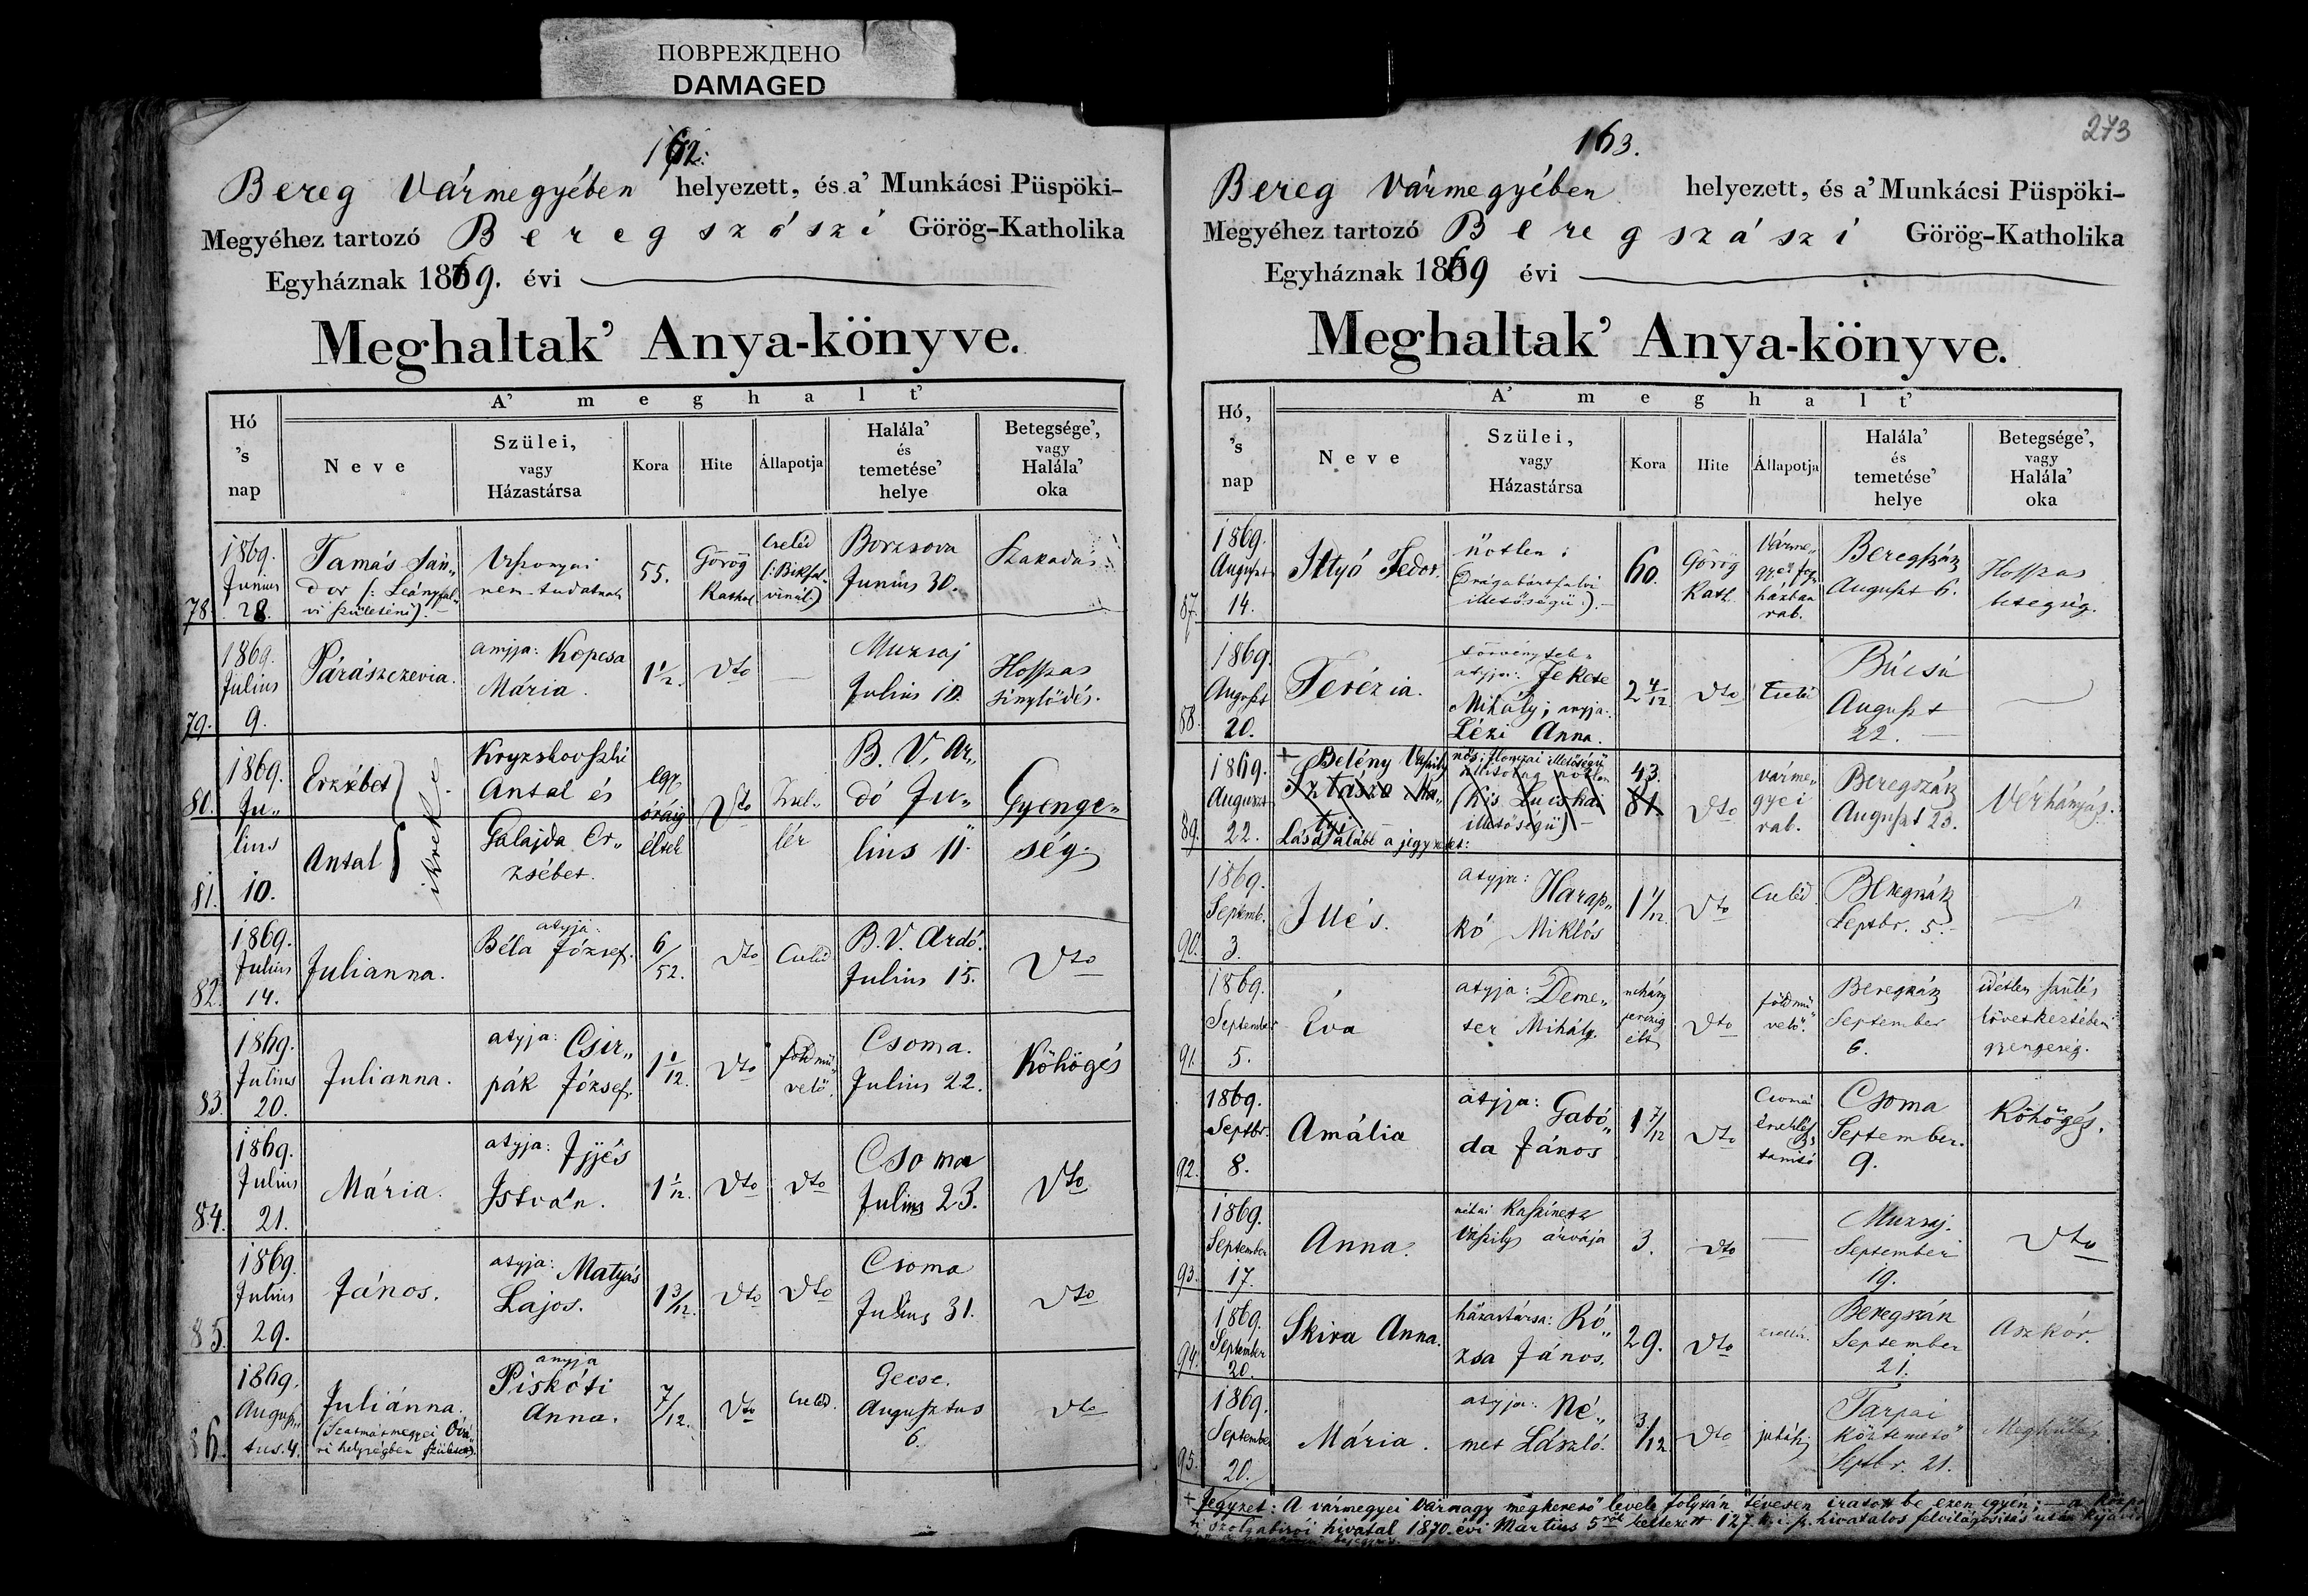 ПОВРЕЖДЕНО
DAMAGED
162.
Bereg Vármegyében helyezett, és a' Munkácsi Püspöki-
Megyéhez tartozó Beregszászi Görög-Katholika
Egyháznak 1869. évi
Meghaltak' Anya-könyve.
A' meghalt'
Hó 's nap
Neve
Szülei, vagy Házastársa
Kora
Hite
Állapotja
Halála' és temetése' helye
Betegsége', vagy Halála' oka
78. 1869. Junius 28.
Tamás Sán„
dor (: Leányfal„
vi születésű).
nem tudatnak
55.
Görög
Kathol
Cseléd
Borzsova
Junius 30.
Szakadás
79. 1869. Julius 9.
Párászkevia.
anyja: Kopcsa
Mária.
1 1/2.
Dto
Muzsaj
Julius 10.
Hosszas
sinylődés.
80. 1869. Ju„
lius
81. 10.
Erzsébet
Antal
ikrek
Antal és
Galajda Er„
zsébet.
egy
óráig
éltek
Dto
Zsel„
lér
B. V. Ar„
dó Ju„
lius 11.
Gyenge„
ség.
82. 1869. Julius 14.
Julianna.
atyja:
Béla József.
6/52.
Dto
Cseléd
B. V. Ardó.
Julius 15.
Dto
83. 1869. Julius 20.
Julianna.
atyja: Csir„
pák József.
1 1/12.
Dto
földmű„
velő.
Csoma.
Julius 22.
Köhögés
84. 1869. Julius 21.
Mária.
atyja: Ijjés
István.
1 1/12.
Dto
Dto
Csoma
Julius 23.
Dto
85. 1869. Julius 29.
János.
atyja: Matyás
Lajos.
1 3/12.
Dto
Dto
Csoma
Julius 31.
Dto
86. 1869. Augusz„
tus. 4.
Juliánna.
(Szatmármegyei
helységben
anyja
Piskóti
Anna.
7/12.
Dto
Cseléd.
Gecse.
Augusztus
6.
Dto
273
163.
Bereg Vármegyében helyezett, és a' Munkácsi Püspöki-
Megyéhez tartozó Beregszászi Görög-Katholika
Egyháznak 1869 évi
Meghaltak' Anya-könyve.
A' meghalt'
Hó, 's nap
Neve
Szülei, vagy Házastársa
Kora
Hite
Állapotja
Halála' és temetése' helye
Betegsége', vagy Halála' oka
87. 1869. August 14.
Ittyó Fedor.
nőtlen;
illetőségű).
60.
Görög
Kath.
Várme„
gyei fegy
házban
rab.
Beregszász
August 6.
Hosszas
betegség.
88. 1869. August 20.
Terézia.
törvénytel„
atyja: Fekete
Mihály; anyja:
Lézi Anna.
2 4/12
Dto
Cseléd
Búcsú
August
22.
89. 1869. August 22.
+ Belény Vaszily
Lásd alább a jegyzetet:
nős; Ilonczai illetőségű
(Kis Lucskai
illetőségű)
43.
81.
Dto
várme„
gyei
rab.
Beregszász
August 23.
Vérhányás.
90. 1869. Septemb. 3.
Illés.
atyja: Harap„
kó Miklós
1 1/12.
Dto
Cseléd.
Beregszász
Septbr. 5.
91. 1869. September 5.
Éva
atyja: Deme„
ter Mihály.
néhány
perczig
élt
Dto
földmű„
velő.
Beregszász
September
6.
idétlen szülés
következtében
gyengeség.
92. 1869. Septbr. 8.
Amália
atyja: Gabó„
da János
1 7/12
Dto
Csomai
énekles
és
tanító
Csoma
September.
9.
Köhögés.
93. 1869. September 17.
Anna.
néhai
Vaszily árvája
3.
Dto
Muzsaj.
September
19.
Dto
94. 1869. September 20.
Skira Anna.
házastársa: Ró„
zsa János.
29.
Dto
zsellér.
Beregszász
September
21.
Aszkór.
95. 1869. September 20.
Mária.
atyja: Né„
met László.
3/12
Dto
juhász
Tarpai
köztemető
Septbr. 21.
Meghülés
+ Jegyzet: A vármegyei várnagy megkereső levele folytán tévesen iratott be ezen egyén; — a közpo
ti szolgabirói hivatal 1870. évi Martius 5ről keltezett 127. hivatalos felvilágosítás után